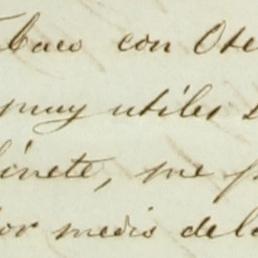 baco con Ote
muy utiles
binete, me p
por medio de la